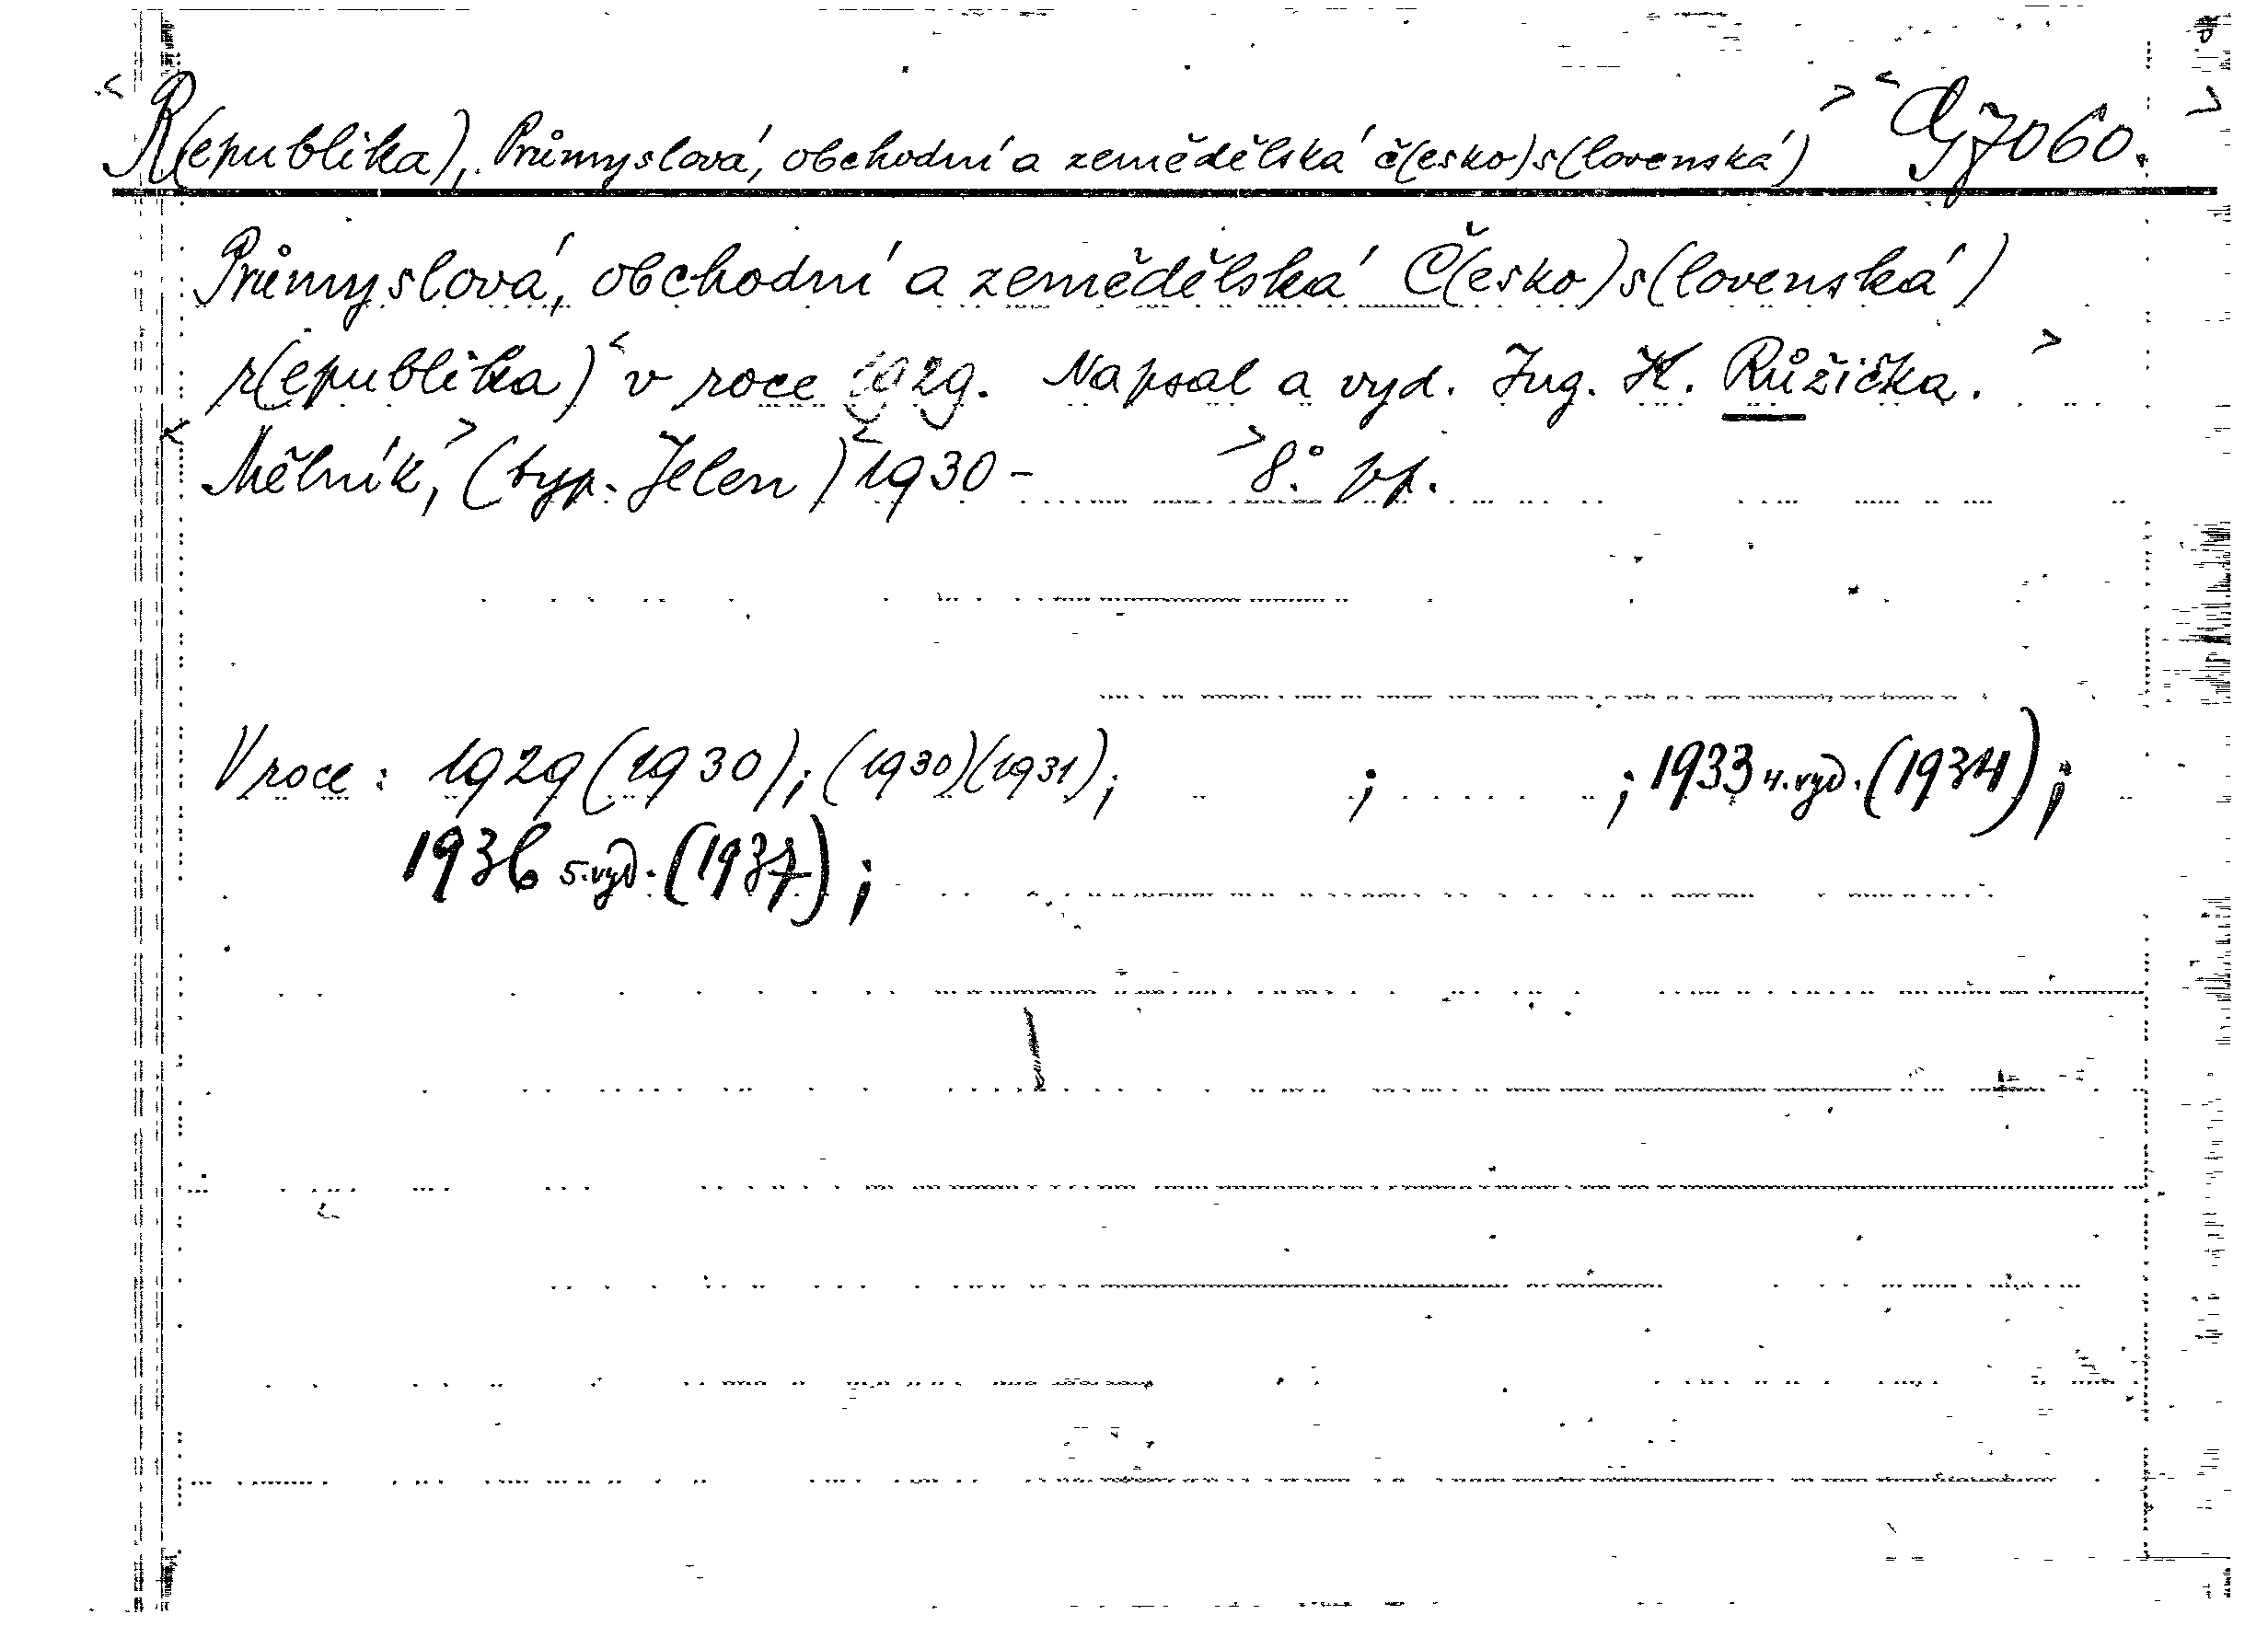 <R(epublika), Průmyslová, obchodní a zemědělská č(esko)s(lovenská)> <G 7060.>
Průmyslová, obchodní a zemědělská Č(esko)s(lovenská)
r(epublika)< v roce 1929. Napsal a vyd. Ing. K. Růžička.>
<Mělník,> (typ. Jelen)<1930- >8°.
V roce: 1929(1930); (1930)(1931); ; ; 1933 4.vyd.(1934);
1936 5.vyd.(1937);